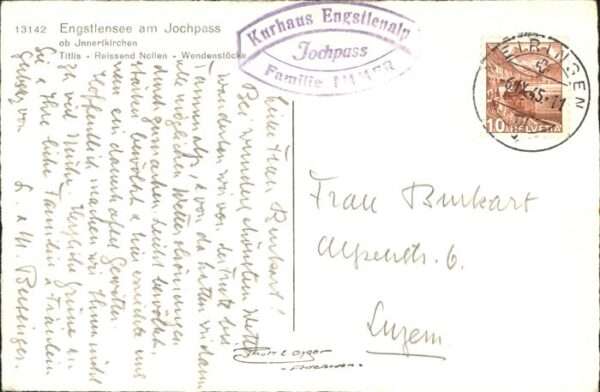 13142 Engstlensee am Jochpass
ob Jnnertkirchen
Titlis - Reissend Nollen - Wendenstöcke
Kurhaus Engstlenalp
Jochpass
Familie IMMER
MEIRINGEN
10
HELVETIA
Liebe Frau Burkart!
Bei wunderschönstem Wetter
wanderten wir von der Frutt bis
Tannenalp, & von da hatten wir dann
alle möglichen Wetterströmungen
durchgemacht, leicht bewölkt,
& hier erreichte uns
nun ein dauerhaftes Gewitter.
Hoffentlich machen wir Ihnen nicht
zu viel Mühe. Herzliche Grüsse an
Sie & Ihre liebe Familie & Fräulein
von
Frau Burkart
Alpenstr. 6.
Luzern.